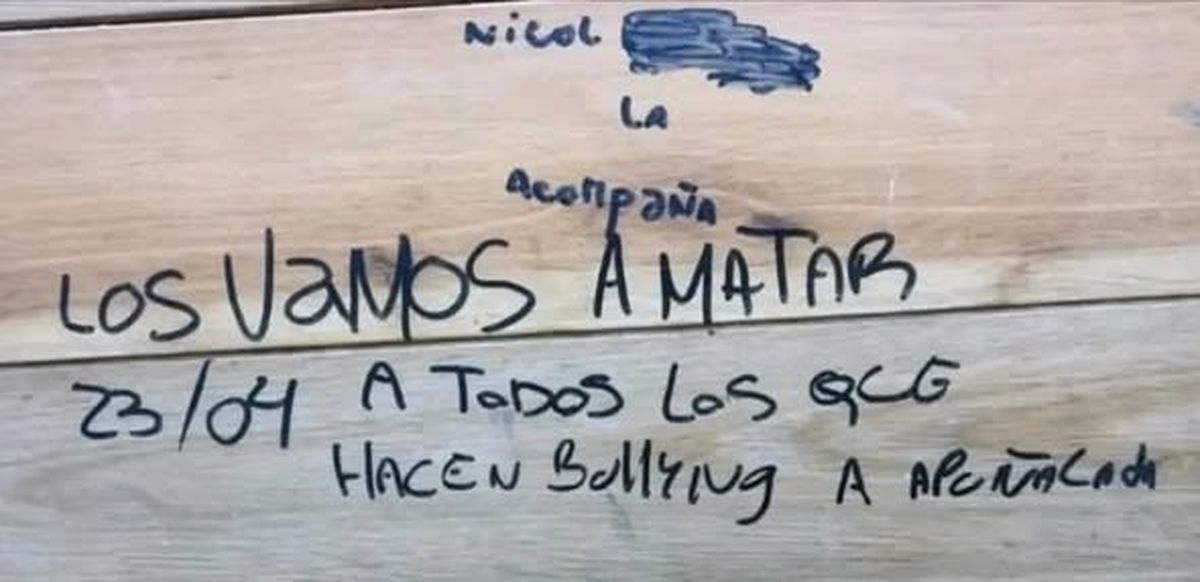 NICOL
LA
ACOMPAÑA
LOS VAMOS A MATAR
23/04 A TODOS LOS QUE
HACEN BULLYING A APUÑALADA